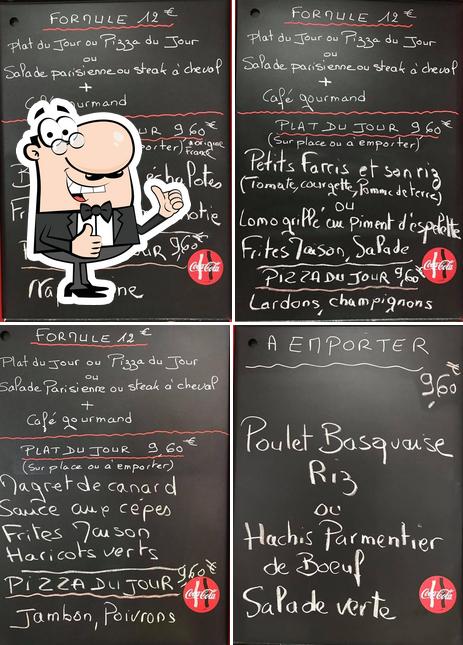 FORMULE 12 €
Plat du Jour ou Pizza du Jour
ou
Salade parisienne ou steak à cheval
+
gourmand
JOUR 9,60 €
9,60 €
Coca-Cola
FORMULE 12 €
Plat du Jour ou Pizza du Jour
ou
Salade parisienne ou steak à cheval
+
Café gourmand
PLAT DU JOUR 9,60 €
(Sur place ou à emporter)
Petits Farcis et son riz
(Tomate, courgette, Pomme de terre)
ou
Lomo grillé au piment d'espelette
Frites Maison, Salade
PIZZA DU JOUR 9,60 €
Coca-Cola
Lardons, champignons
FORMULE 12 €
Plat du Jour ou Pizza du Jour
ou
Salade Parisienne ou steak à cheval
+
Café gourmand
PLAT DU JOUR 9,60 €
(Sur place ou à emporter)
Magret de canard
Sauce aux cépes
Frites Maison
Haricots verts
PIZZA DU JOUR 9,60 €
Coca-Cola
Jambon, Poivrons
A EMPORTER
9,60 €
Poulet Basquaise
Riz
ou
Hachis Parmentier
de Boeuf
Salade verte
Coca-Cola